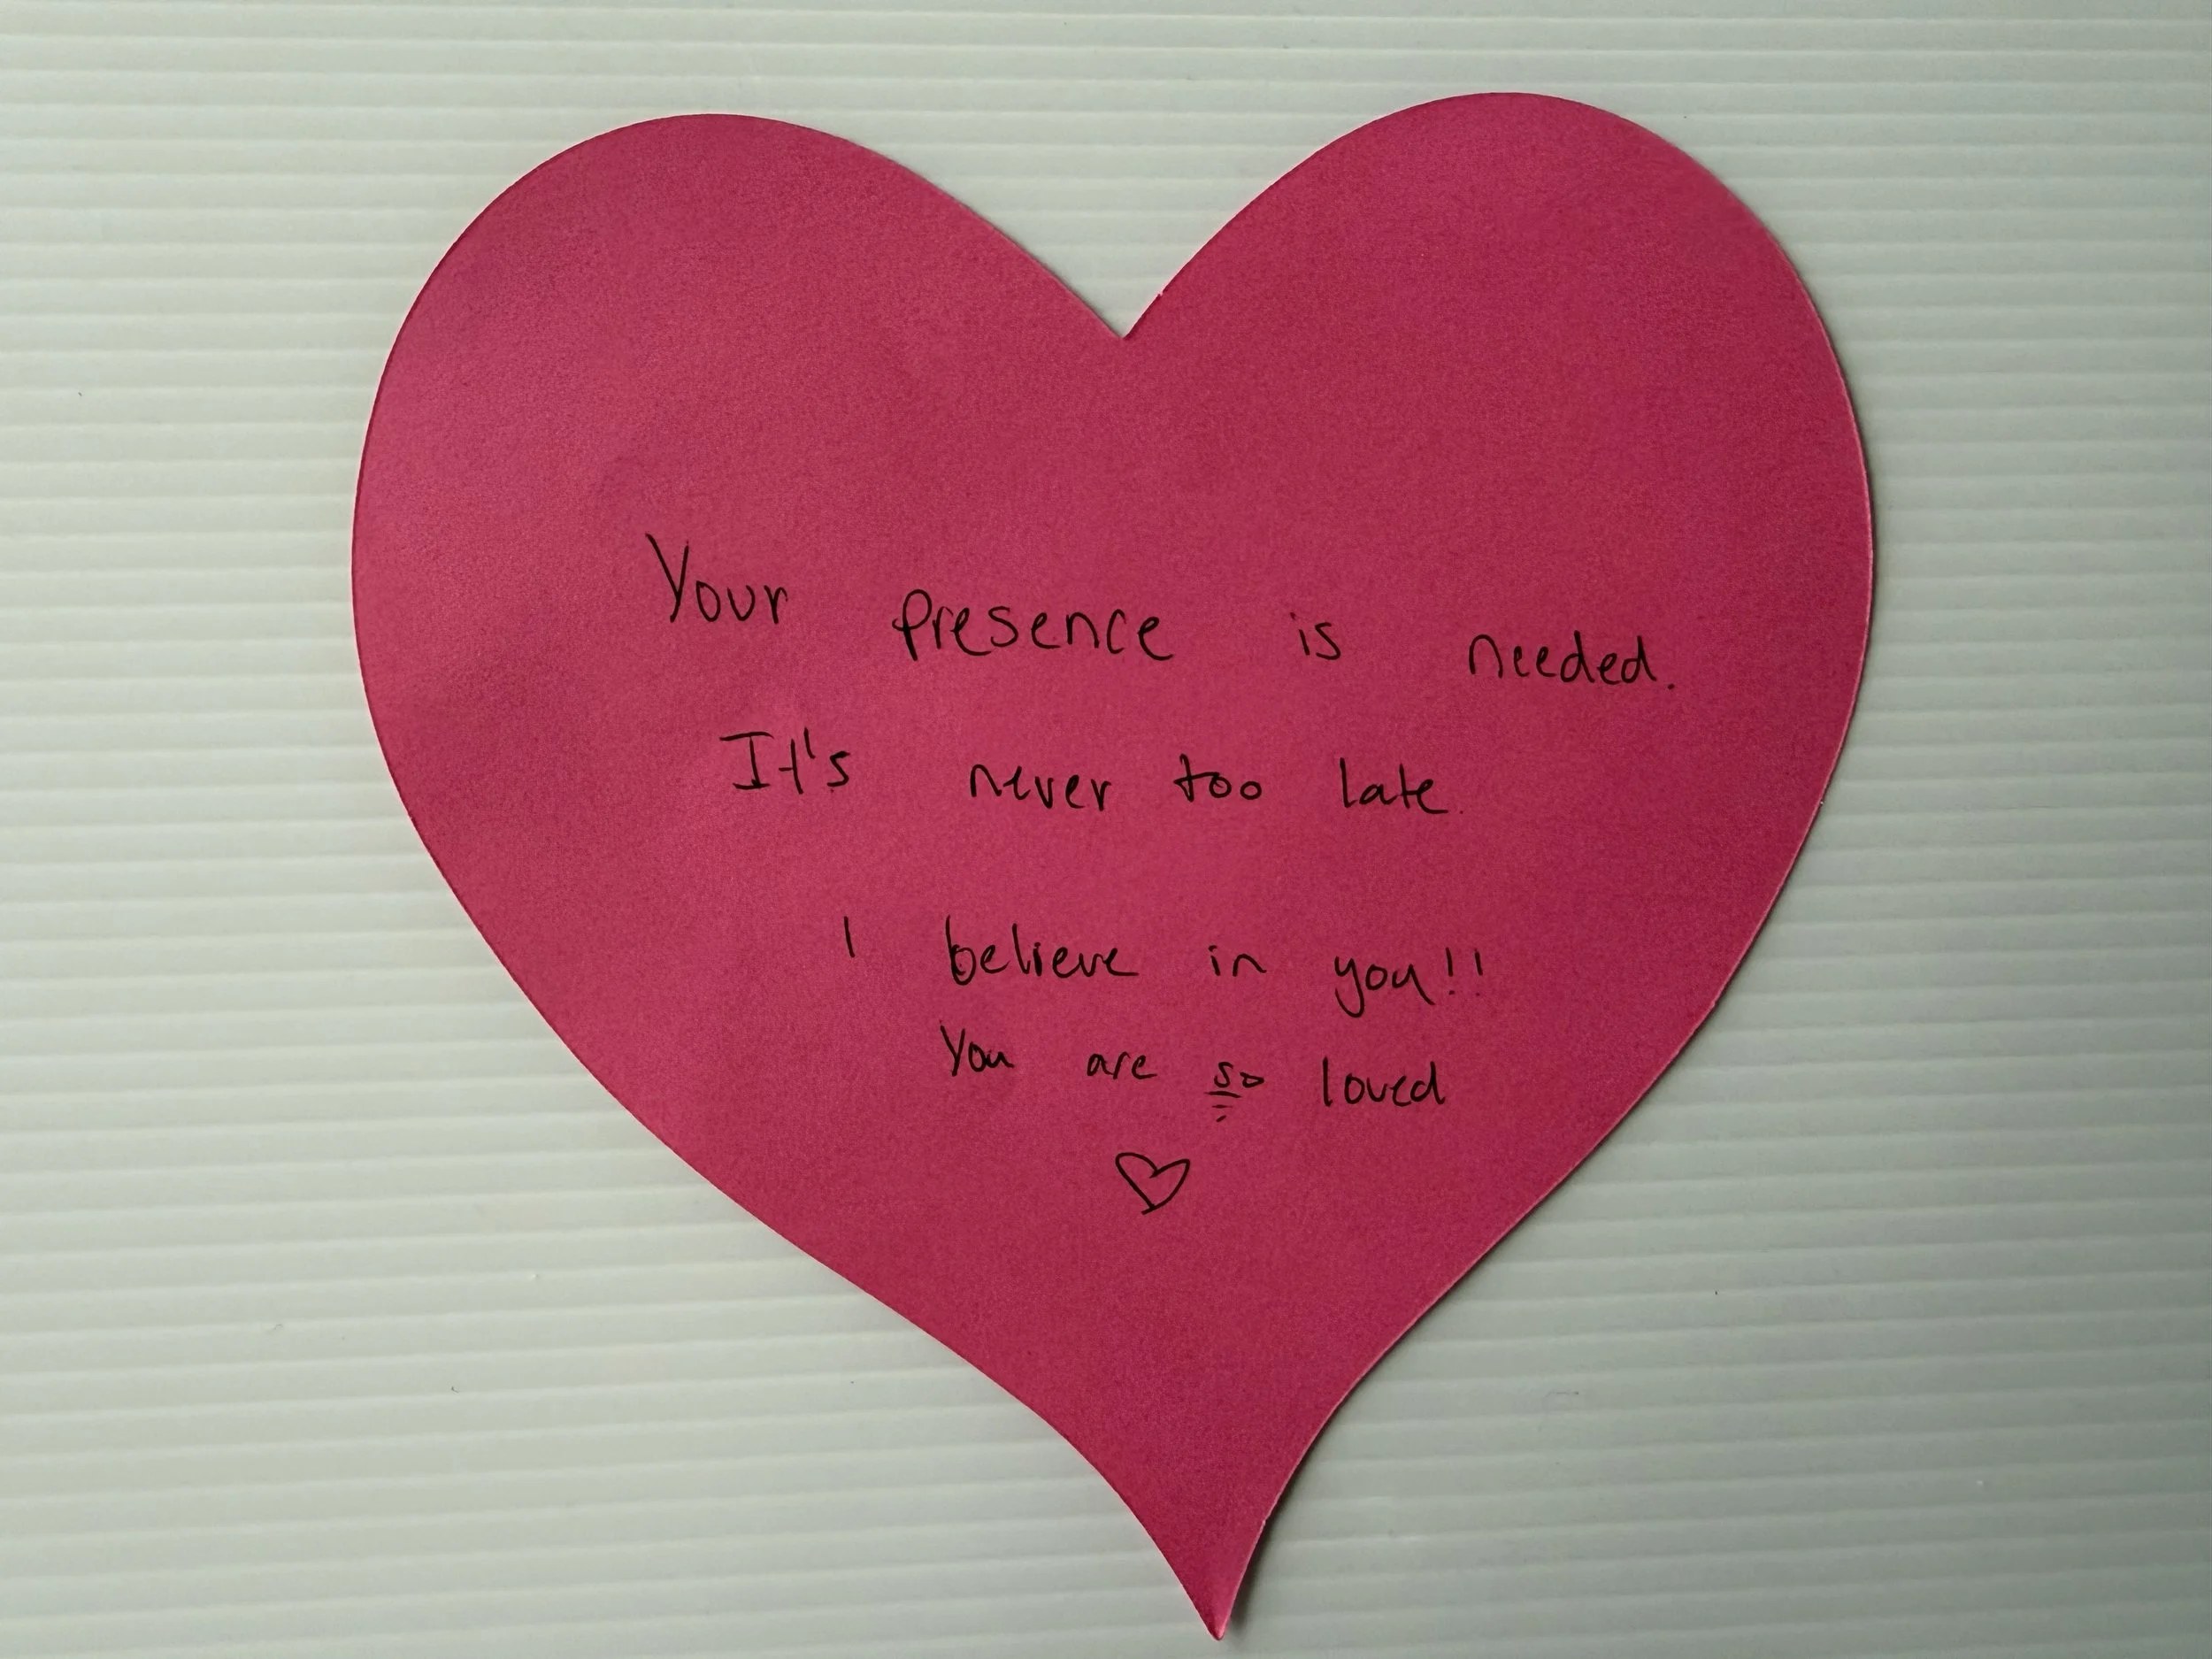 Your presence is needed.
It's never too late.
I believe in you!!
You are so loved